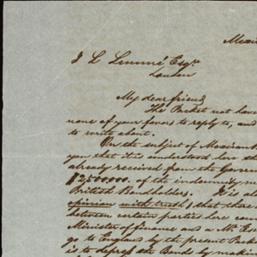 Mexic
J L Lemmé Esqr.
London
My dear friend,
The Packet not hav
none of your favors to reply to, and
to write about.
On the subject of Mexican
you that it is understood here th
already received from the Govern
$2500000. of the indemnity m
British Bondholders. It is al
opinion with truth; that there
between certain parties here conn
Minister of finance and a Mr
go to England by the present Packe
is to depress the Bonds by makin